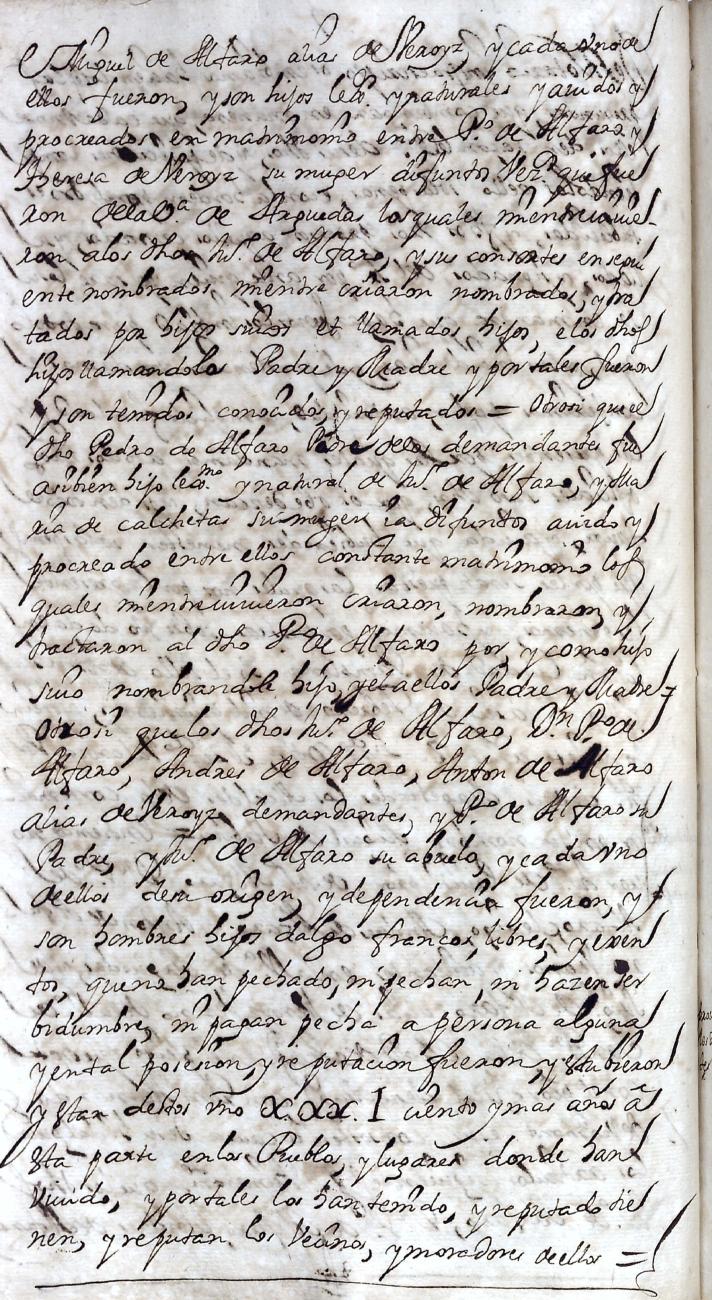 Miguel de Alfaro alias de Veroyz, y cada vno de
ellos fueron, y son hijos lexos. y naturales y auidos y
procreados en matrimonio entre Po. de Alfaro y
Theresa de Veroyz su muger difuntos Vezs. que fue
ron dela Va. de Arguedas los quales mientre viuie-
ron alos dhos Ml. de Alfaro, y sus consortes en segui
ente nombrados mientre criaron nombrados, y tra
tados por hijos suios et llamados hijos, elos dhos
hijos llamandolos Padre y Madre y por tales fueron
y son tenidos conocidos, y reputados = Otrosi que el
dho Pedro de Alfaro Padre delos demandantes fue
asibien hijo lexmo. y natural de Ml. de Alfaro, y Ma
ria de calchetas su muger ia difuntos auido y
procreado entre ellos constante matrimonio los
quales mientre viuieron criaron, nombraron, y
tractaron al dho Po. de Alfaro por y como hijo
suio nombrandole hijo, y el a ellos Padre y Madre =
Otrosi que los dhos Ml. de Alfaro, Dn. Po. de
Alfaro, Andres de Alfaro, Anton de Alfaro
alias de Veroyz demandantes, y Po. de Alfaro su
Padre, y Ml. de Alfaro su abuelo, y cada vno
de ellos de su origen, y dependencia fueron, y
son hombres hijos dalgo francos, libres, y exen
tos, que no han pechado, ni pechan, ni hazen ser
bidumbre, ni pagan pecha a persona alguna
y en tal posesion, y reputacion fueron, y estubieron
y estan destos vno X.XX.I ciento y mas años a
esta parte en los Pueblos, y lugares donde han
viuido, y por tales los han tenido, y reputado tie
nen, y reputan los Vecinos, y moradores de ellos =